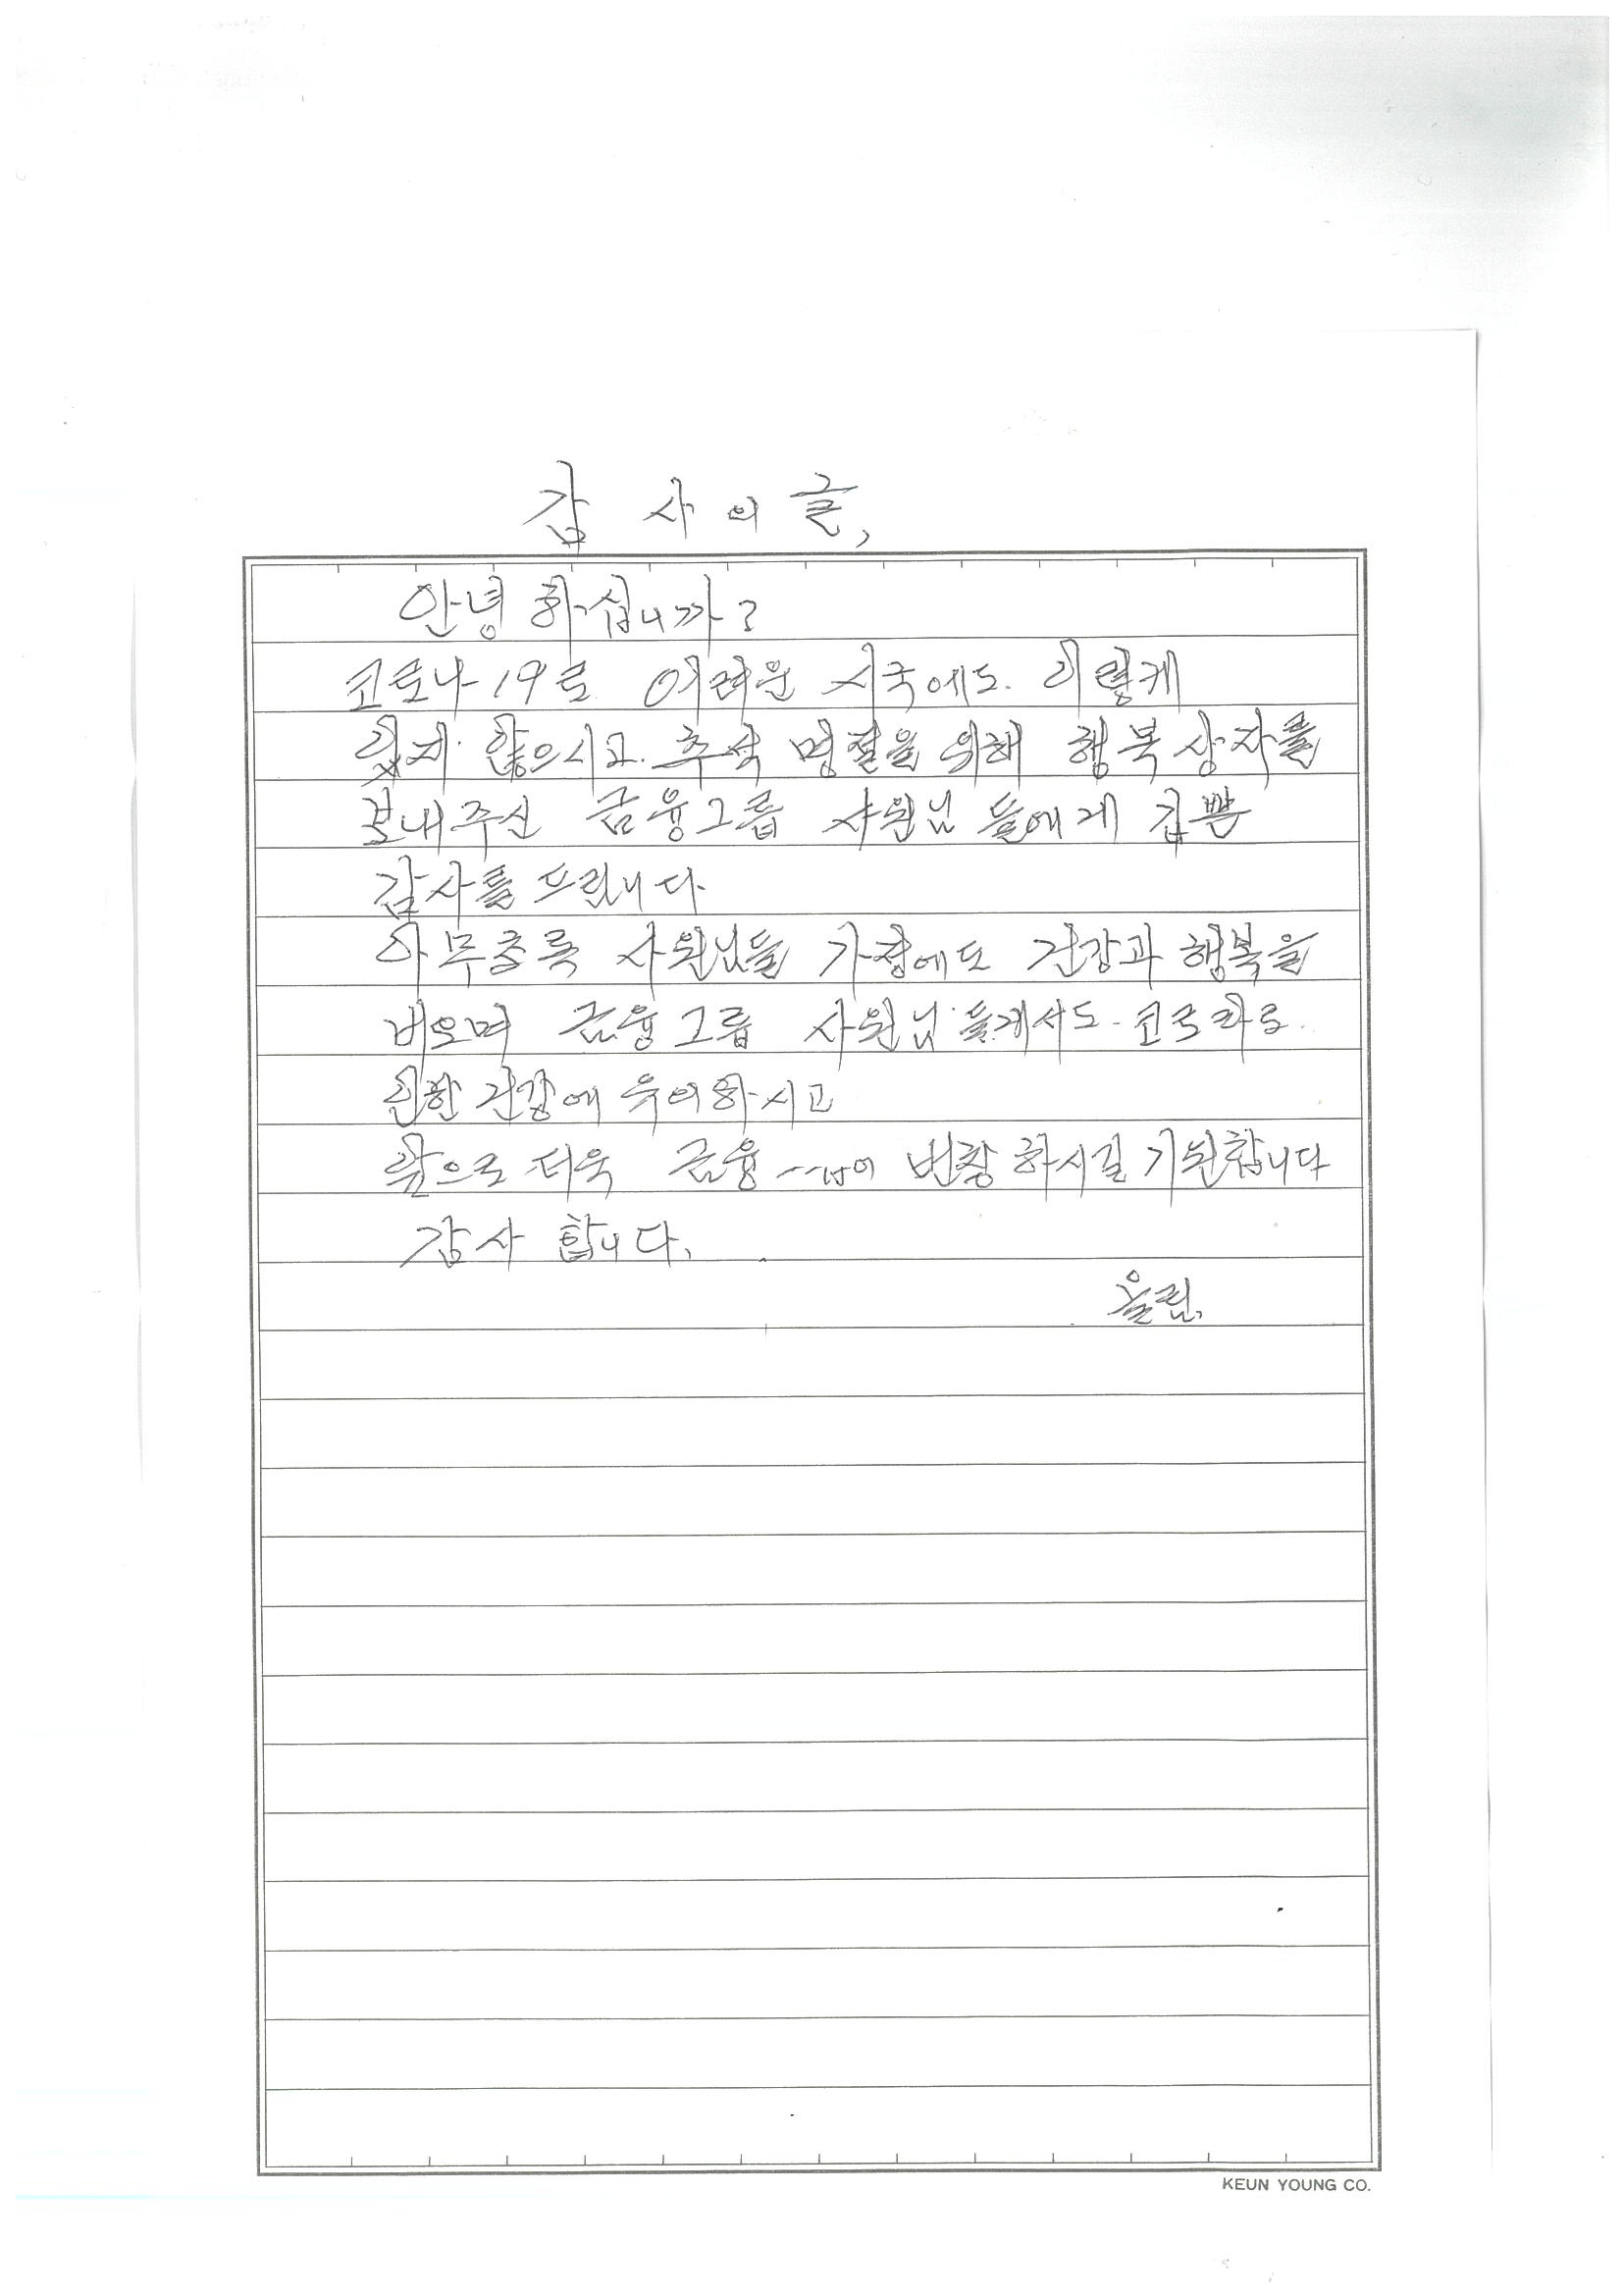 감사의 글,
안녕 하십니까?
코로나19로 어려운 시국에도 이렇게
잊지 않으시고 추석 명절을 위해 행복 상자를
보내주신 금융그룹 사원님 들에게 깊쁜
감사를 드립니다
아무쪼록 사원님들 가정에도 건강과 행복을
비오며 금융그룹 사원님 들게서도 코로나로
인한 건강에 유의하시고
앞으로 더욱 금융 번창 하시길 기원합니다
감사 합니다.
올림.
KEUN YOUNG CO.